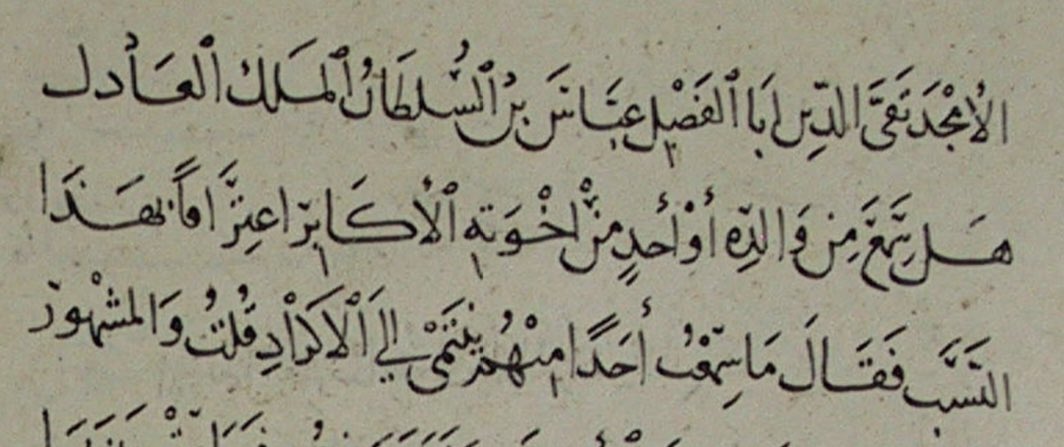 الأمجد تقى الدين ابا الفضل عباس بن السلطان الملك العادل
هل سمع من والده أو أحد من اخوته الأكابر اعترافا بهذا
النسب فقال ما سمعت أحدا منهم ينتمى إلى الأكراد قلت والمشهور